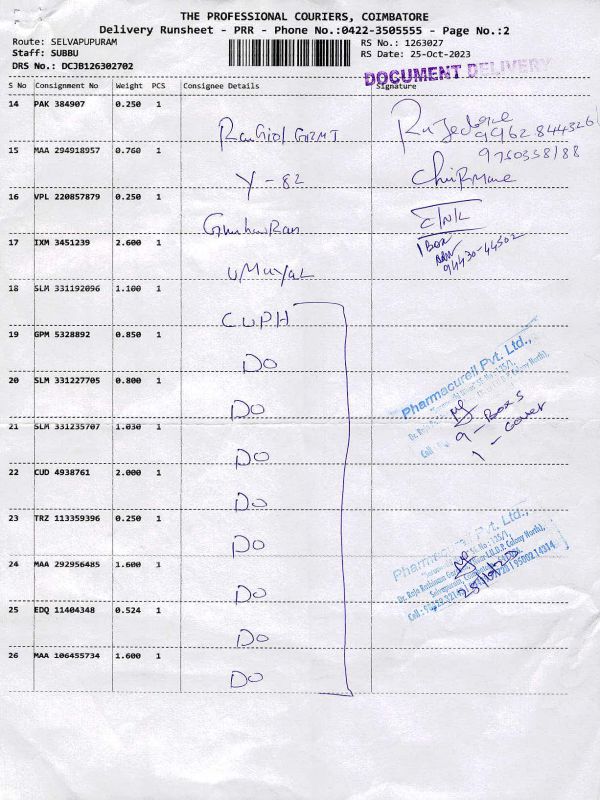 THE PROFESSIONAL COURIERS, COIMBATORE
Delivery Runsheet - PRR - Phone No.:0422-3505555 - Page No.:2
Route: SELVAPUPURAM RS No.: 1263027
Staff: SUBBU RS Date: 25-Oct-2023
DRS No.: DCJB126302702 DOCUMENT DELIVERY
S No Consignment No Weight PCS Consignee Details Signature
14 PAK 384907 0.250 1
15 MAA 294918957 0.760 1
Y - 82
16 VPL 220857879 0.250 1
C/N/L
1 Box
94430-44502
17 IXM 3451239 2.600 1
UMayaL
18 SLM 331192096 1.100 1
CUPH
19 GPM 5328892 0.850 1
DO
Pharmacureil Pvt. Ltd.,
20 SLM 331227705 0.800 1
DO
9 - Boxs
1 - cover
21 SLM 331235707 1.030 1
DO
22 CUD 4938761 2.000 1
DO
23 TRZ 113359396 0.250 1
DO
Pharmacureil Pvt. Ltd.,
24 MAA 292956485 1.600 1
DO
25 EDQ 11404348 0.524 1
DO
26 MAA 106455734 1.600 1
DO